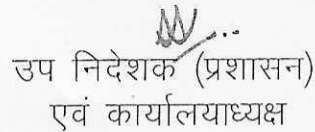 उप निदेशक (प्रशासन)
एवं कार्यालयाध्यक्ष